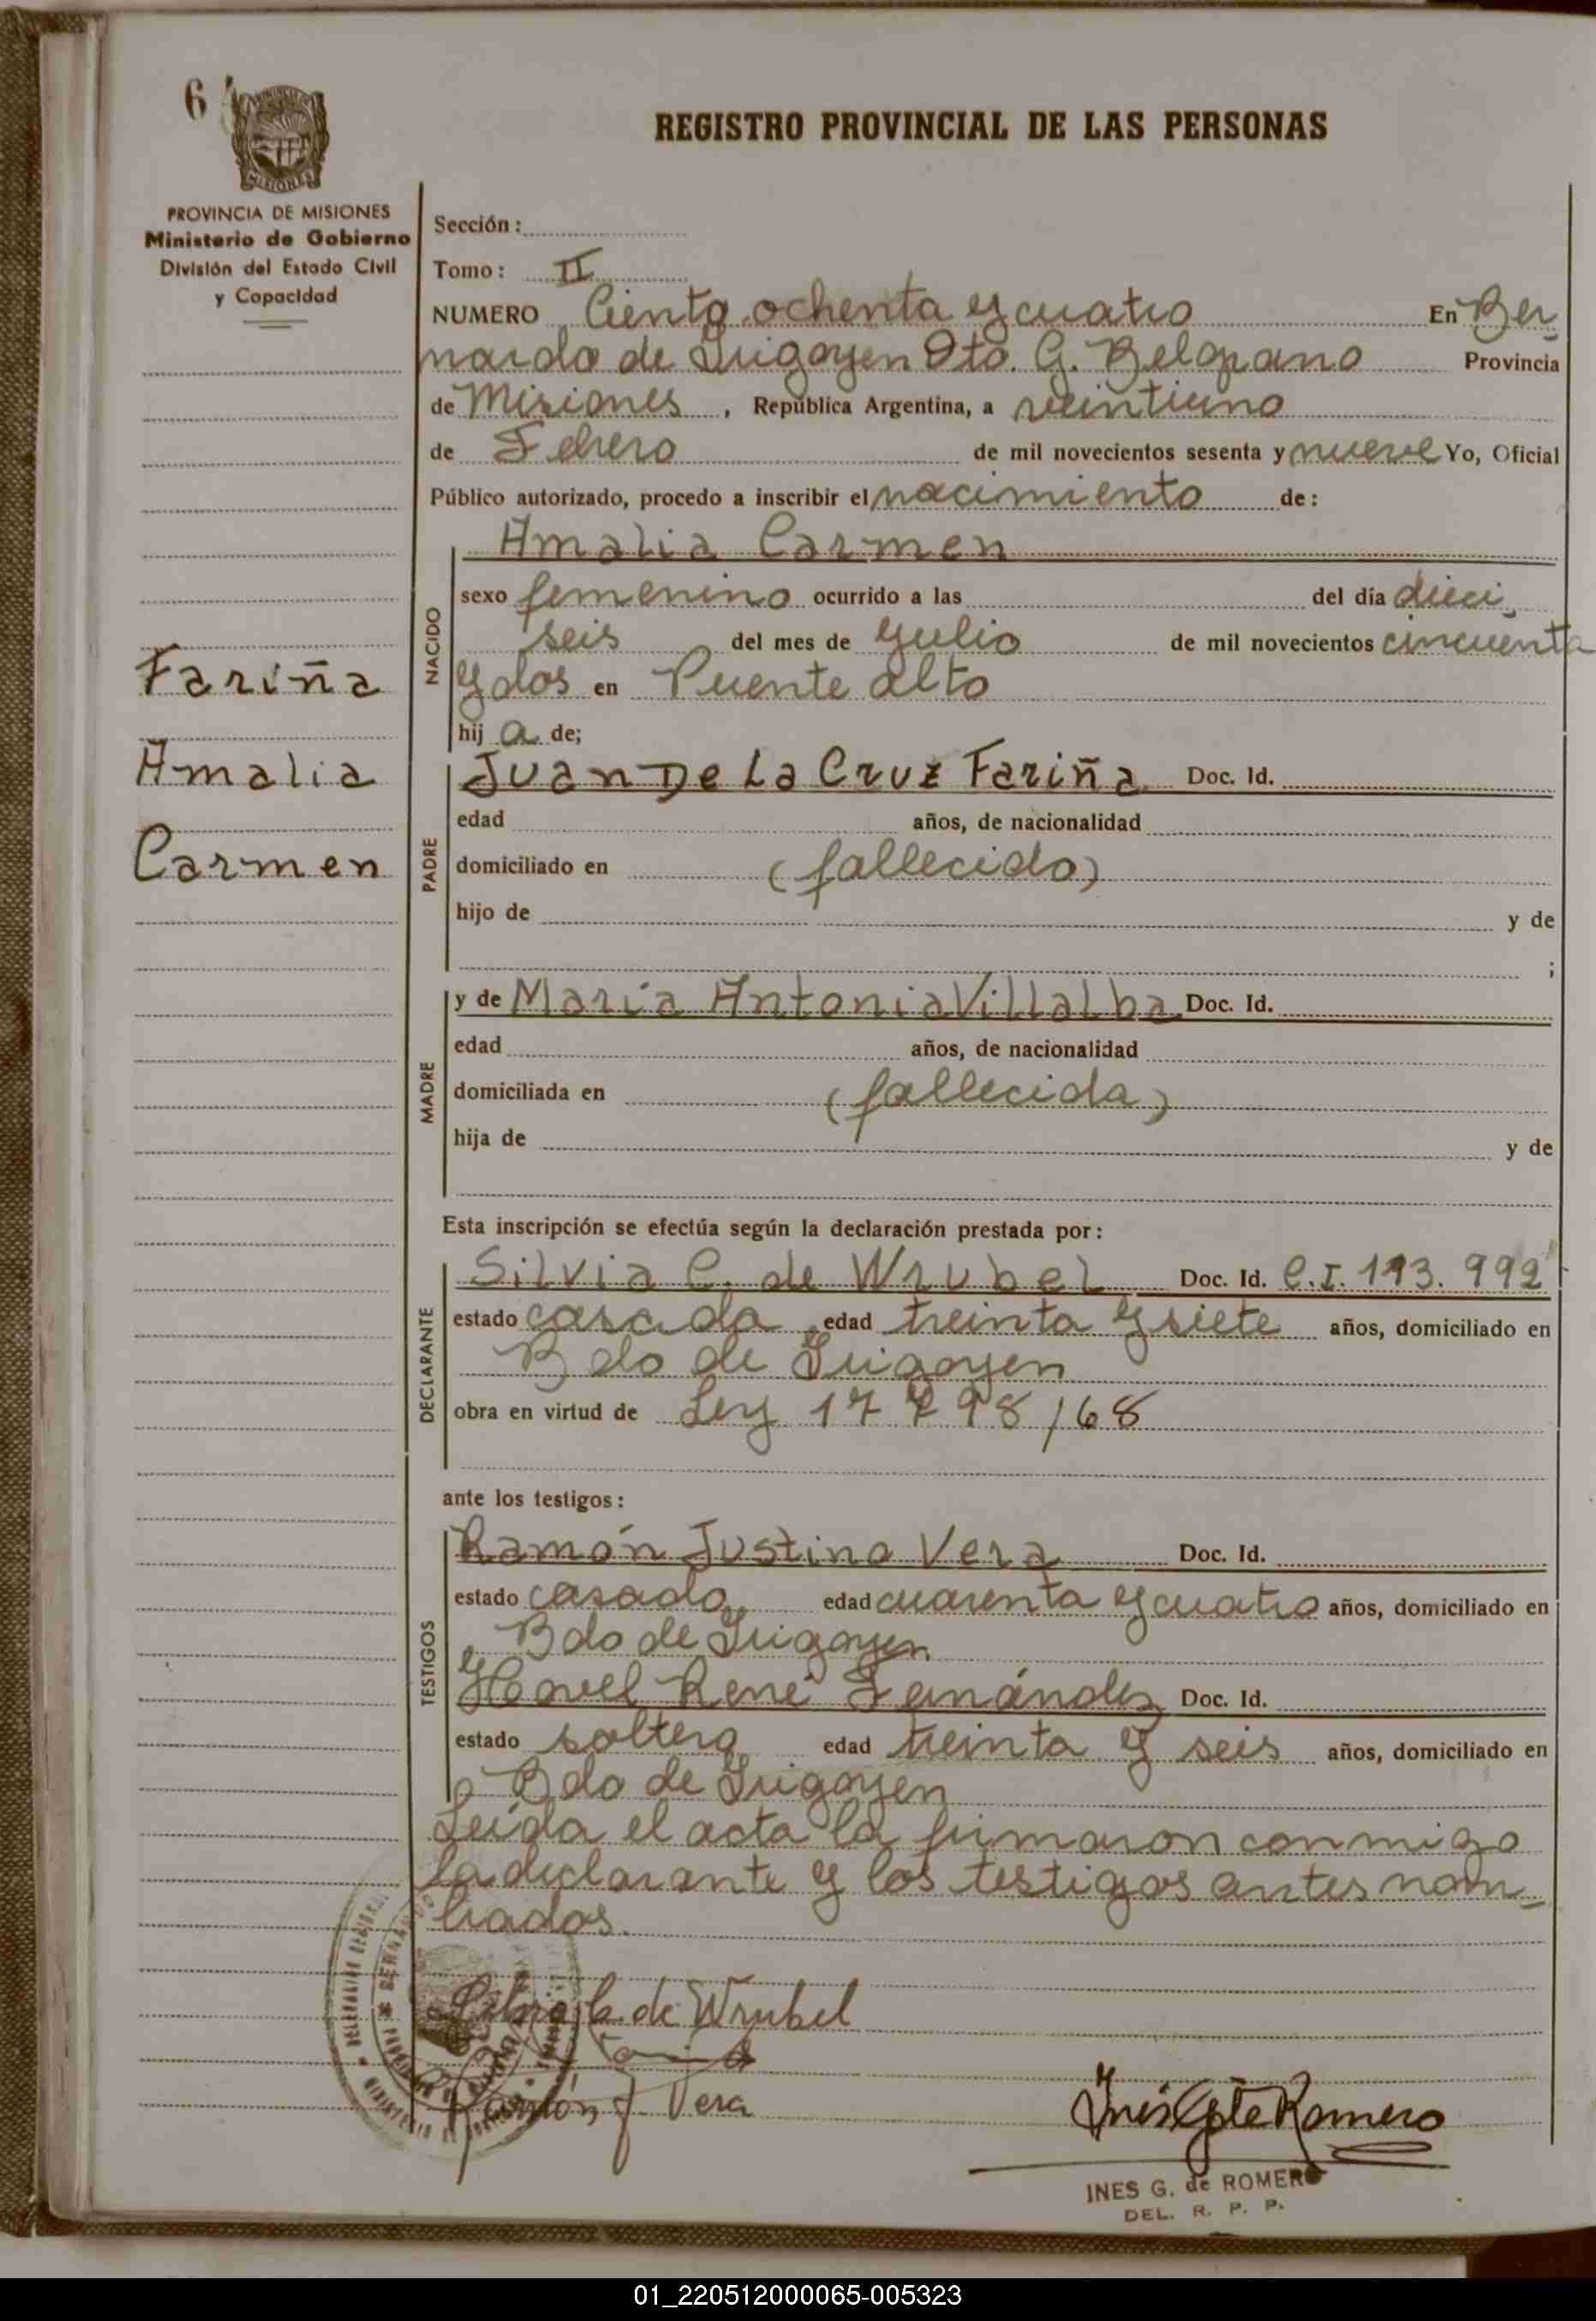 6
MISIONES
REGISTRO PROVINCIAL DE LAS PERSONAS
PROVINCIA DE MISIONES
Ministerio de Gobierno
División del Estado Civil
y Capacidad
Sección:
Tomo: II
NUMERO Ciento ochenta y cuatro En Ber
nardo de Irigoyen Dto. G. Belgrano Provincia
de Misiones, República Argentina, a veintiuno
de Febrero de mil novecientos sesenta y nueve Yo, Oficial
Público autorizado, procedo a inscribir el nacimiento de:
Amalia Carmen
NACIDO
sexo femenino ocurrido a las del día dieci
seis del mes de Julio de mil novecientos cincuenta
y dos en Puente alto
hij a de;
Fariña
Amalia
Carmen
PADRE
Juan De La Cruz Fariña Doc. Id.
edad años, de nacionalidad
domiciliado en (fallecido)
hijo de y de
;
MADRE
y de María Antonia Villalba Doc. Id.
edad años, de nacionalidad
domiciliada en (fallecida)
hija de y de
Esta inscripción se efectúa según la declaración prestada por:
DECLARANTE
Silvia C. de Wrubel Doc. Id. C.I. 193.992
estado casada edad treinta y siete años, domiciliado en
Bdo de Irigoyen
obra en virtud de Ley 17798/68
ante los testigos:
TESTIGOS
Ramón Justino Vera Doc. Id.
estado casado edad cuarenta y cuatro años, domiciliado en
Bdo de Irigoyen
René Fernández Doc. Id.
estado soltero edad treinta y seis años, domiciliado en
Bdo de Irigoyen
Leída el acta la firmaron conmigo
la declarante y los testigos antes nom
brados.
de Wrubel
Ramón J. Vera
Inés Gte Romero
INES G. de ROMERO
DEL. R. P. P.
01_220512000065-005323